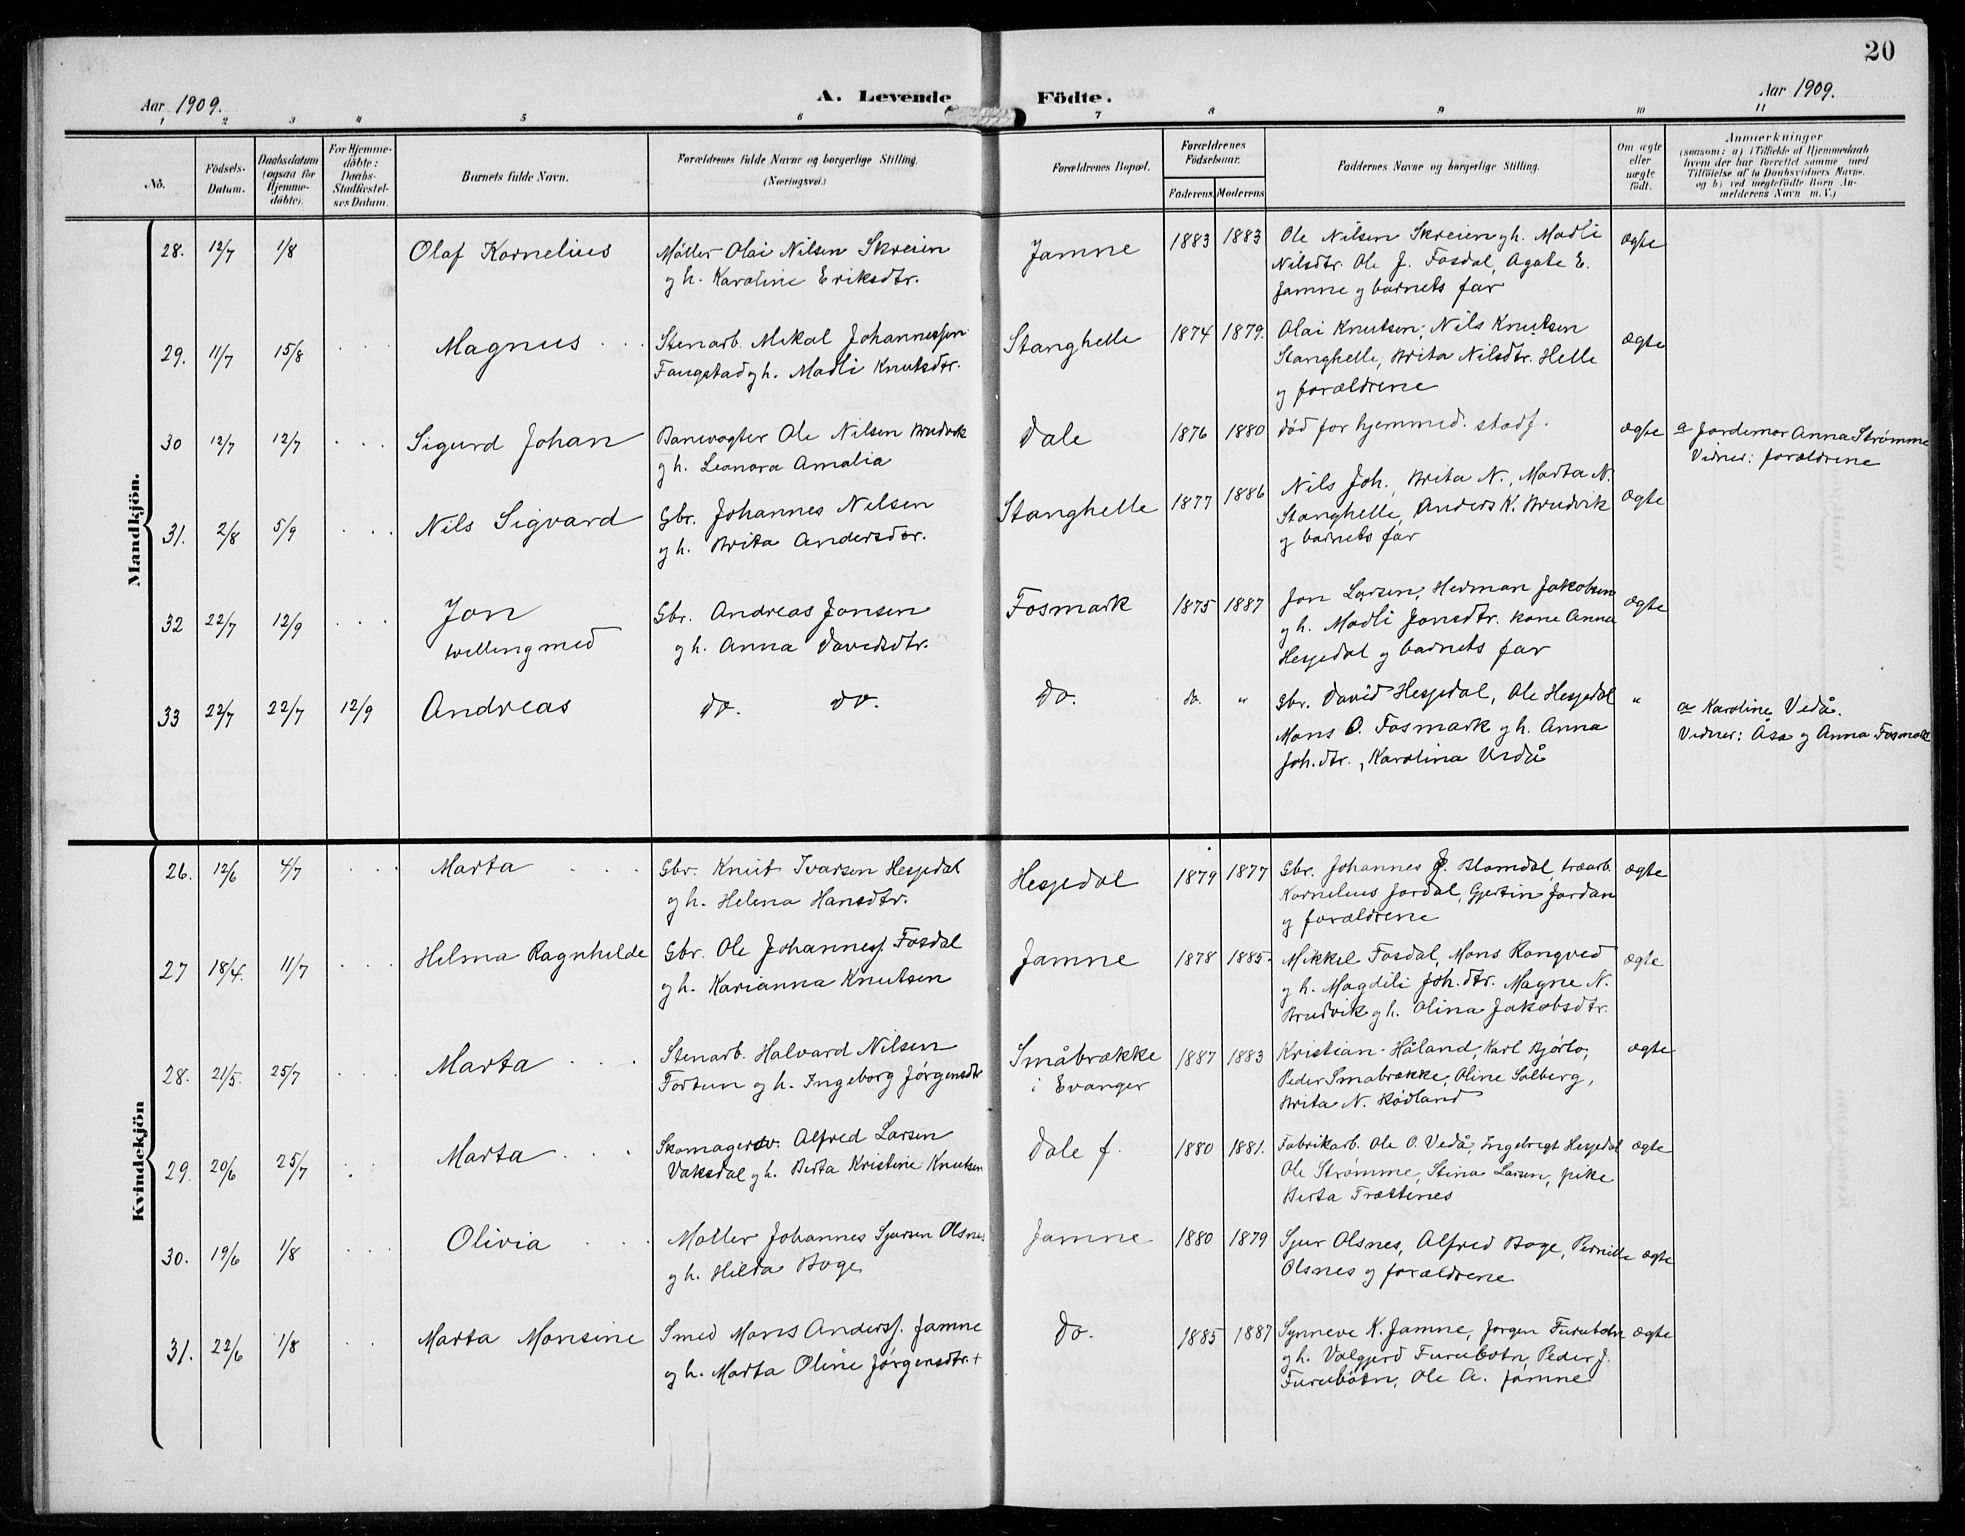 20
Aar 1909.
A. Levende Födte.
Aar 1909.
1 2 3 4 5 6 7 8 9 10 11
No.
Födsels-
Datum.
Daabsdatum
(ogsaa for
Hjemme-
döbte).
For Hjemme-
döbte:
Daabs-
Stadfæstel-
ses Datum.
Barnets fulde Navn.
Forældrenes fulde Navne og borgerlige Stilling.
(Næringsvei.)
Forældrenes Bopæl.
Forældrenes
Födselsaar.
Faderens. Moderens.
Faddernes Navne og borgerlige Stilling.
Om ægte
eller
uægte
födt.
Anmærkninger
(saasom: a) i Tilfælde af Hjemmedaab
hvem der har forrettet samme med
Tilföielse af to Daabsvidners Navne.
og b) ved uægtefödte Börn An-
melderens Navn m. V.)
Mandkjön.
28. 12/7 1/8 Olaf Kornelius
Møller Olai Nilsen Skreien
g h. Karoline Eriksdtr.
Jamne 1883 1883
Ole Nilsen Skreien g h. Madli
Nilsdtr. Ole J. Fosdal, Agate E.
Jamne g barnets far
ægte
29. 11/7 15/8 Magnus
Stenarb. Mikal Johannessen
Fangstad g h. Madli Knutsdtr.
Stanghelle 1874 1879.
Olai Knutsen, Nils Knutsen
Stanghelle, Brita Nilsdtr. Helle
g forældrene
ægte
30 12/7 12/7 Sigurd Johan
Banevogter Ole Nilsen Brudvik
g h. Leonora Amalia
Dale 1876 1880
død før hjemmed. stadf.
ægte
a Jordemor Anna Strømme
Vidner: forældrene
31. 2/8 5/9 Nils Sigvard
Gbr. Johannes Nilsen
g h. Brita Andersdtr.
Stanghelle 1877 1886
Nils Joh., Brita N., Marta N.
Stanghelle, Anders K. Brudvik
g barnets far
ægte
32 22/7 12/9 Jon
tvilling med
Gbr. Andreas Jonsen
g h. Anna Davidsdtr.
Fosmark 1875 1887
Jon Larsen, Herman Jakobsen
g h. Madli Jonsdtr. kone Anna
Hesjedal g barnets far
ægte
33 22/7 22/7 12/9 Andreas
do. do.
do. do. "
Gbr. David Hesjedal, Ole Hesjedal
Mons O. Fosmark g h. Anna
Joh.dtr., Karolina Vedå
"
a Karoline Vedå.
Vidner: Åsa g Anna Fosmark
Kvindekjön
26. 12/6 4/7 Marta
Gbr. Knut Ivarsen Hesjedal
g h. Helena Hansdtr.
Hesjedal 1879 1877
Gbr. Johannes J. Blomdal, træarb.
Kornelius Jordal, Gjertin Jordan
g forældrene
ægte
27 18/4. 11/7 Helma Ragnhilde
Gbr. Ole Johanness. Fosdal
g h. Karianna Knutsen
Jamne 1878 1885.
Mikkel Fosdal, Mons Rongved
g h. Magdili Joh.dtr. Magne N.
Brudvik g h. Olina Jakobsdtr.
ægte
28. 21/5. 25/7 Marta
Stenarb. Halvard Nilsen
Fortun g h. Ingeborg Jørgensdtr
Småbrække
i Evanger
1887 1883
Kristian Håland, Karl Bjørlo,
Peder Småbrække, Oline Solberg,
Brita N. Rødland
ægte
29. 20/6 25/7 Marta
Skomagersv. Alfred Larsen
Vaksdal g h. Berta Kristine Knutsen
Dale f. 1880 1881.
Fabrikarb. Ole O. Vedå, Ingebregt Hesjedal
Ole Strømme, Stina Larsen, pike
Berta Trættenes
ægte
30. 19/6 1/8 Olivia
Møller Johannes Sjursen Olsnes
g h. Hilda Boge
Jamne 1880 1879
Sjur Olsnes, Alfred Boge, Pernille
Olsnes g forældrene
ægte
31. 22/6 1/8 Marta Monsine
Smed Mons Anderss. Jamne
g h. Marta Oline Jørgensdtr. +
do. 1885 1887
Synneve K. Jamne, Jørgen Furubotn
g h. Valgjerd Furubotn, Peder J.
Furubotn, Ole A. Jamne
ægte